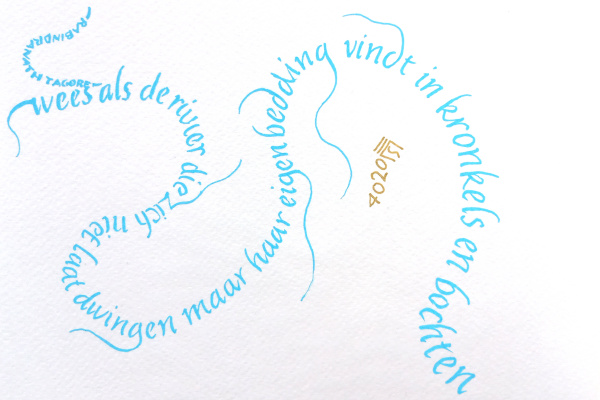 wees als de rivier die zich niet laat dwingen maar haar eigen bedding vindt in kronkels en bochten
RABINDRANATH TAGORE